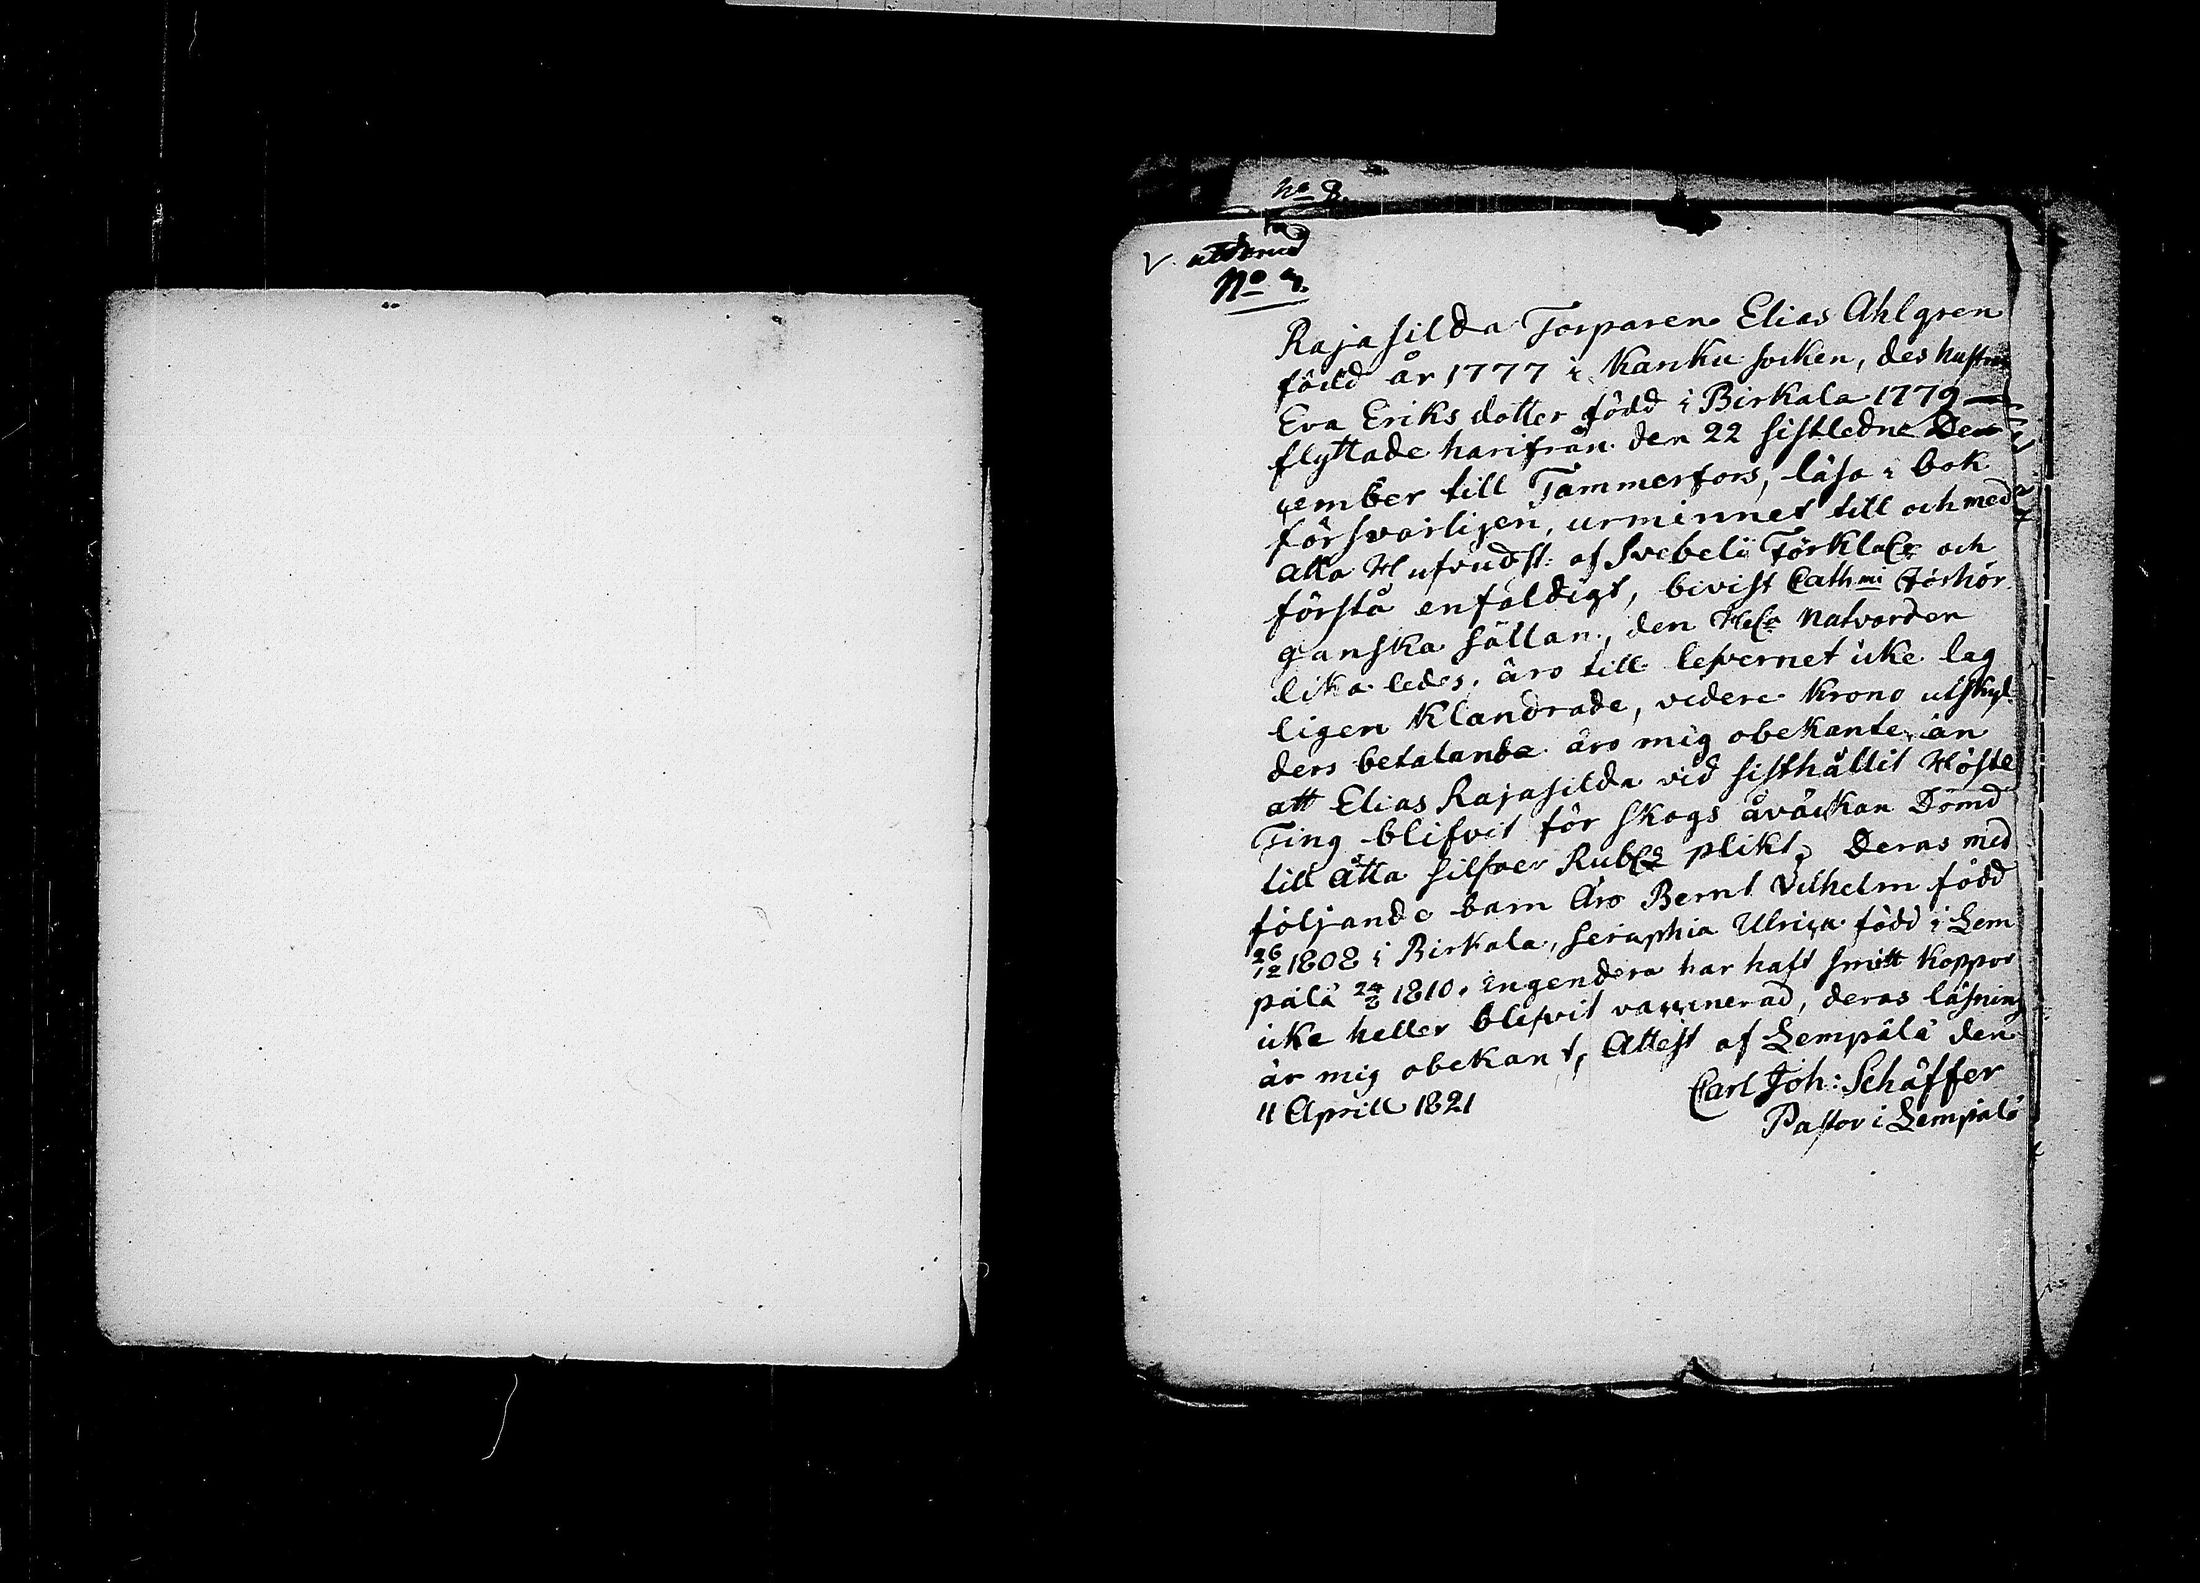 No 8.
No 7.
Rajasilda Torparen Elias Ahlgren
född år 1777 i Karku socken, des hustru
Eva Eriks dotter född i Birkala 1779
flyttade härifrån den 22 sistledne De
cember till Tammerfors, läsa i bok
försvarligen, urminnet till och med
Atta Hufvudst: af Svebelii Förkla och
förstå enfaldigt, bivist Cathmi förhör
ganska sällan, den Hel Natvarden
lika ledes, äro till lefvernet icke lag
ligen Klandrade, videre Krono utskyl
ders betalande äro mig obekante, än
att Elias Rajasilda vid sisthållit Höste
Ting blifvit för Skogs åväckan Dömd
till åtta silfver Rub plikt, Deras med
följande barn Äro Bernt Vilhelm född
26/12 1808 i Birkala, Seraphia Ulrica född i Lem
pälä 24/8 1810. Ingendera har haft smitt koppor
icke heller blifvit vaccinerad, deras läsning
är mig obekant, Attest af Lempälä den
11 Aprill 1821 Carl Joh: Schäffer
Pastor i Lempälä